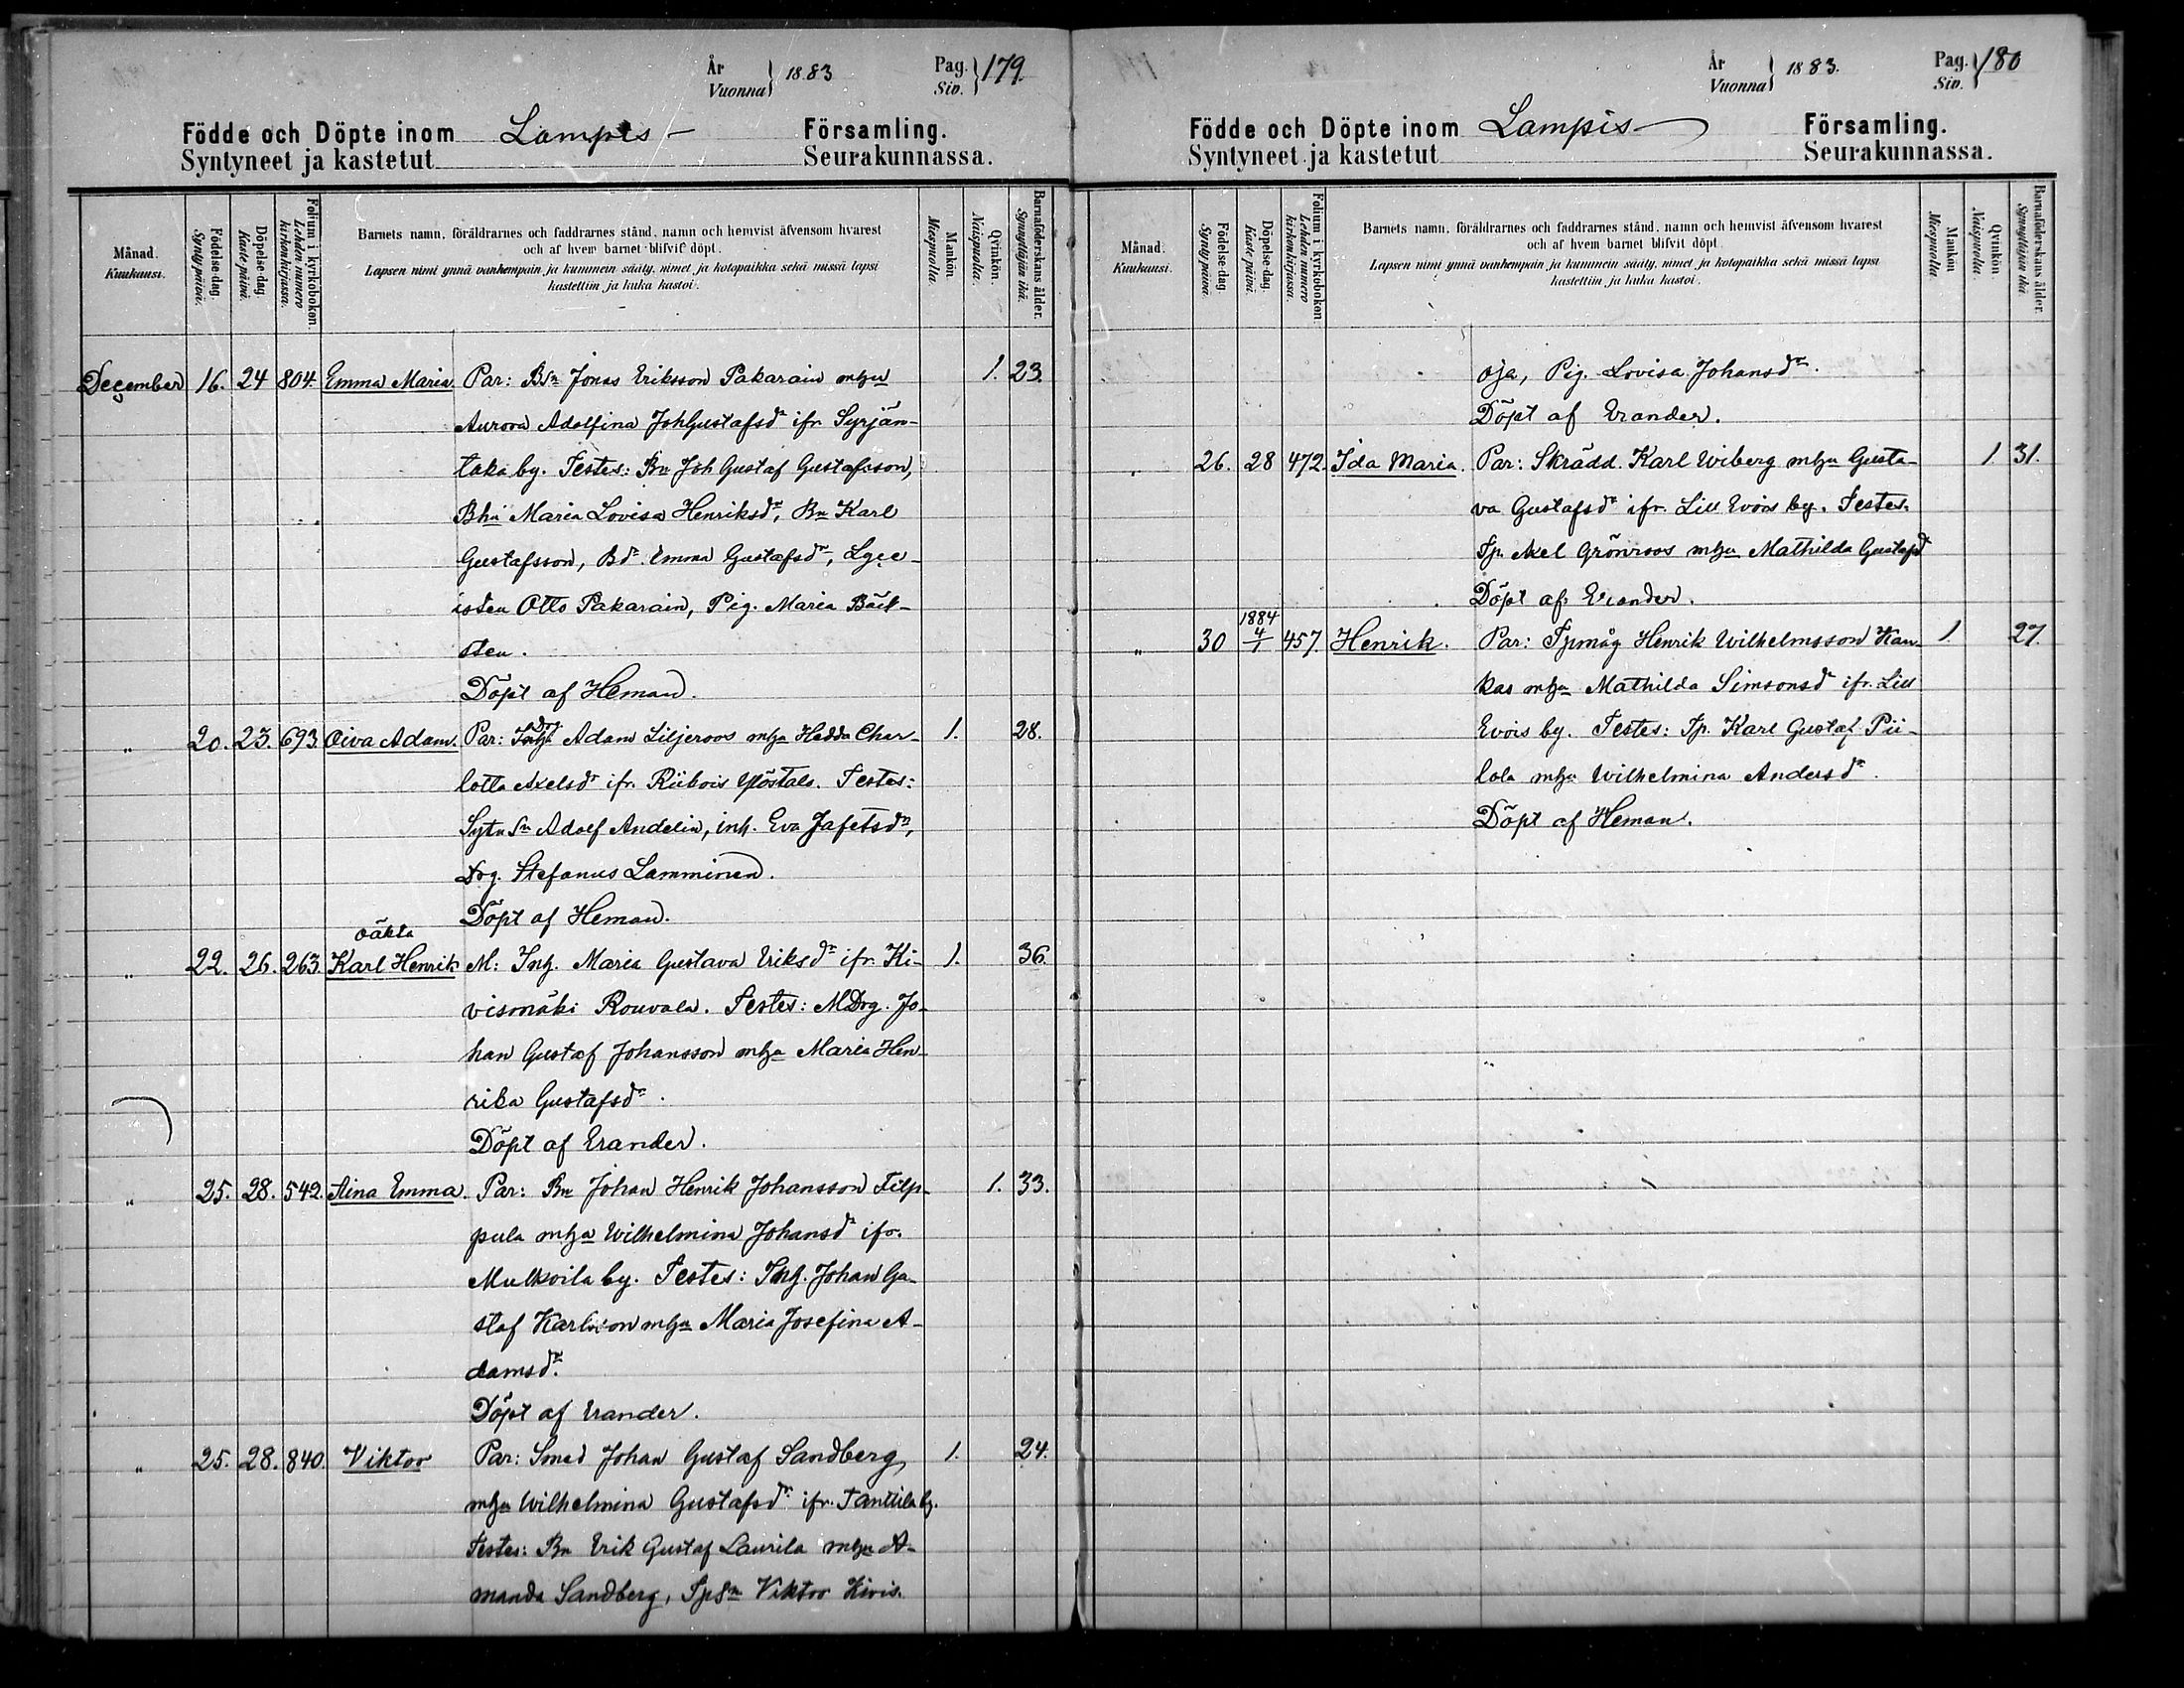 År
Vuonna } 1883
Pag.
Siv. } 179.
Födde och Döpte inom Lampis Församling.
Syntyneet ja kastetut Seurakunnassa.
Månad.
Kuukausi.
Födelse-dag.
Synty-päivä.
Döpelse-dag.
Kaste-päivä.
Folium i kyrkoboken.
Lehden numero
kirkonkirjassa.
Barnets namn, föräldrarnes och faddrarnes stånd, namn och hemvist äfvensom hvarest
och af hvem barnet blifvit döpt.
Lapsen nimi ynnä vanhempain ja kummein sääty, nimet ja kotopaikka sekä missä lapsi
kastettiin ja kuka kastoi.
Mankön.
Miespuolia.
Qvinkön.
Naispuolia.
Barnaföderskans ålder.
Synnyttäjän ikä.
December 16. 24 804. Emma Maria. Par: BSn Jonas Eriksson Pakarain mhu 1. 23.
Aurora Adolfina JohGustafsdr ifr Syrjän-
taka by. Testes: Bn Joh Gustaf Gustafsson,
Bhu Maria Lovisa Henriksdr, Bn Karl
Gustafsson, Bdr Emma Gustafsdr, Lyce-
isten Otto Pakarain, Pig. Maria Bäck-
sten.
Döpt af Heman.
" 20. 23. 693. Oiva Adam. Par: Adam Liljeroos mhu Hedda Char- 1. 28.
lotta Axelsdr ifr. Riibois Ylöstalo. Testes:
Sytn Sn Adolf Andelin, inh. Eva Jafetsdr,
Drg. Stefanus Lamminen.
Döpt af Heman.
oäkta
" 22. 26. 263. Karl Henrik M: Inh. Maria Gustava Eriksdr ifr. Ki- 1. 36.
vismäki Rouvala. Testes: MDrg. Jo-
han Gustaf Johansson mhu Maria Hen-
rika Gustafsdr.
Döpt af Erander.
" 25. 28. 542. Aina Emma. Par: Bn Johan Henrik Johansson Filp- 1. 33.
pula mhu Wilhelmina Johansdr ifr.
Mulkoila by. Testes: Inh. Johan Gu-
staf Karlsson mhu Maria Josefina A-
damsdr.
Döpt af Erander.
" 25. 28. 840. Viktor Par: Smed Johan Gustaf Sandberg 1. 24.
mhu Wilhelmina Gustafsdr ifr. Tanttila by.
Testes: Bn Erik Gustaf Laurila mhu A-
manda Sandberg, TpSn Viktor Kivis-
År
Vuonna } 1883.
Pag.
Siv. } 180
Födde och Döpte inom Lampis Församling.
Syntyneet ja kastetut Seurakunnassa.
Månad.
Kuukausi.
Födelse-dag.
Synty-päivä.
Döpelse-dag.
Kaste-päivä.
Folium i kyrkoboken.
Lehden numero
kirkonkirjassa.
Barnets namn, föräldrarnes och faddrarnes stånd, namn och hemvist äfvensom hvarest
och af hvem barnet blifvit döpt.
Lapsen nimi ynnä vanhempain ja kummein sääty, nimet ja kotopaikka sekä missä lapsi
kastettiin ja kuka kastoi.
Mankön
Miespuolia.
Qvinkön
Naispuolia.
Barnaföderskans ålder.
Synnyttäjän ikä.
oja, Pig. Lovisa Johansdr.
Döpt af Erander.
" 26. 28 472. Ida Maria. Par: Skrädd. Karl Wiberg mhu Gusta- 1 31.
va Gustafsdr ifr. Lill Evois by. Testes:
Tp. Axel Grönroos mhu Mathilda Gustafsdr
Döpt af Erander.
" 30 1884 4/1 457. Henrik. Par: Tpmåg Henrik Wilhelmsson Kan- 1. 27.
kas mhu Mathilda Simonsdr ifr. Lill
Evois by. Testes: Tp. Karl Gustaf Pii-
lola mhu Wilhelmina Andersdr.
Döpt af Heman.